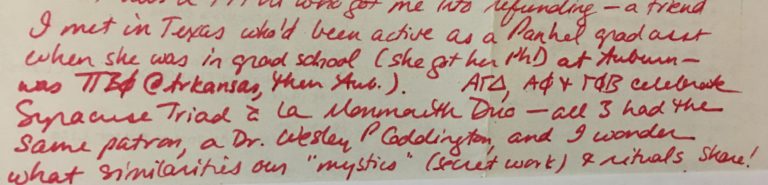 was a work got me into refunding — a friend
I met in Texas who'd been active as a Panhel grad asst
when she was in grad school (she got her PhD) at Auburn —
was ΠΒΦ @ Arkansas, then Aub.). ΑΓΔ, ΑΦ & ΓΦΒ celebrate
Syracuse Triad à la Monmouth Duo — all 3 had the
same patron, a Dr. Wesley P Coddington, and I wonder
what similarities our "mystics" (secret work) & rituals share!